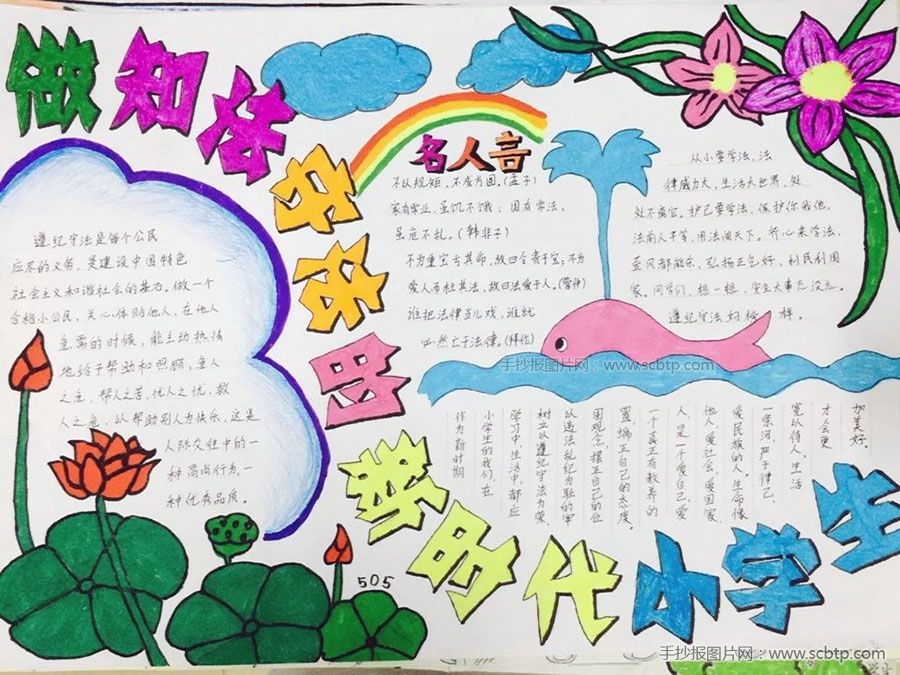 做知法守法的新时代小学生
遵纪守法是每个公民
应尽的义务，是建设中国特色
社会主义和谐社会的基石。做一个
合格小公民，关心、体贴他人，在他人
急需的时候，能主动热情
地给予帮助和照顾，急人
之急，帮人之苦，忧人之忧，救
人之危，以帮助别人为快乐，这是
人际交往中的一
种高尚行为，一
种优秀品质。
名人言
不以规矩，不成方圆。(孟子)
家有常业，虽饥不饿；国有常法，
虽危不乱。(韩非子)
不为重宝亏其命，故曰令贵于宝；不为
爱人枉其法，故曰法爱于人。(管仲)
谁把法律当儿戏，谁就
必然亡于法律。(拜伦)
从小要学法，法
律威力大，生活大世界，处
处不离它。护己要学法，保护你我他，
法前人平等，用法闯天下。齐心来学法，
歪风都能杀，弘扬正气好，利民利国
家。同学们，想一想，安全大事忘没忘。
遵纪守法
作为新时期
小学生的我们，在
学习中，生活中，都应
树立以遵纪守法为荣，
以违法乱纪为耻的牢
固观念，摆正自己的位
置，端正自己的态度。
一个真正有教养的
人，是一个爱自己，爱
他人，爱社会，爱国家，
爱民族的人。生命像
一条河，严于律己，
宽以待人，生活
才会更
加美好。
505
手抄报图片网：www.scbtp.com
手抄报图片网：www.scbtp.com